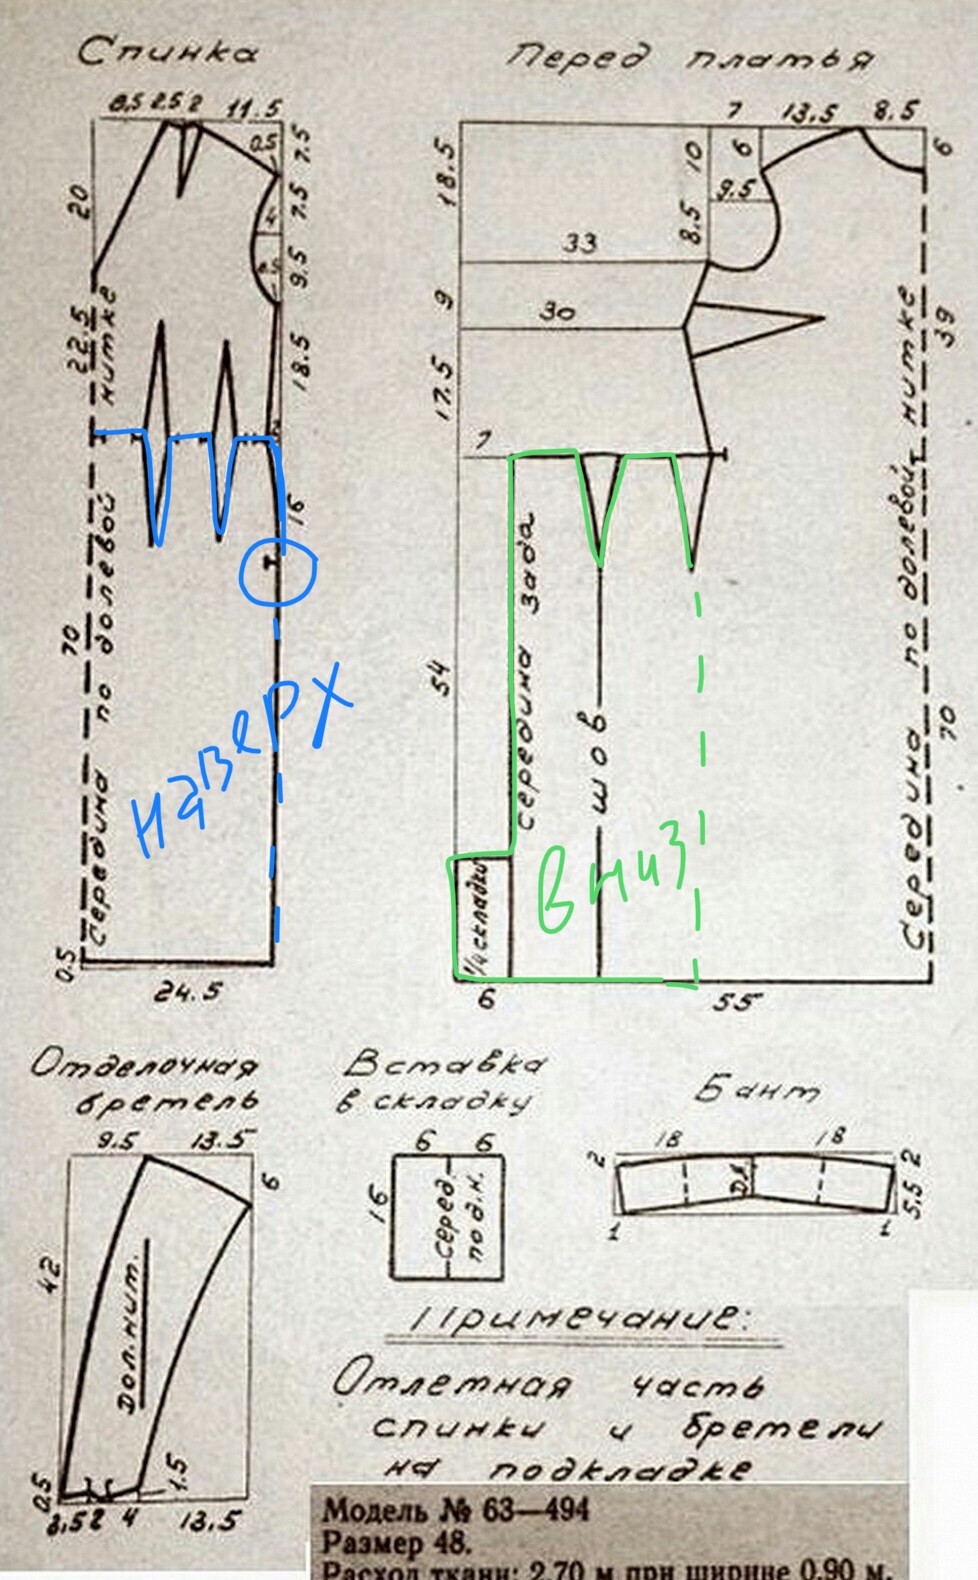 Спинка
Перед платья
8,5 2.5 2 11.5
7 13,5 8.5
0.5
7.5
18.5
10
6
6
20
4
7.5
9.5
8.5
9.5
33
9
30
22.5
18.5
17.5
39
7
16
70
54
70
Середина по долевой нитке
Середина зада
шов
Середина по долевой нитке
наверх
вниз
1/4 складки
0.5
24.5
6
55
Отделочная
бретель
Вставка
в складку
Бант
9.5 13.5
6
6 6
18 18
2
2
16
серед.
под.н.
5.5
1
1
42
дол.нит.
0.5
1.5
3,5 2 4 13.5
Примечание:
Отлетная часть
спинки и бретели
на подкладке
Модель № 63—494
Размер 48.
Расход ткани: 2,70 м при ширине 0,90 м.